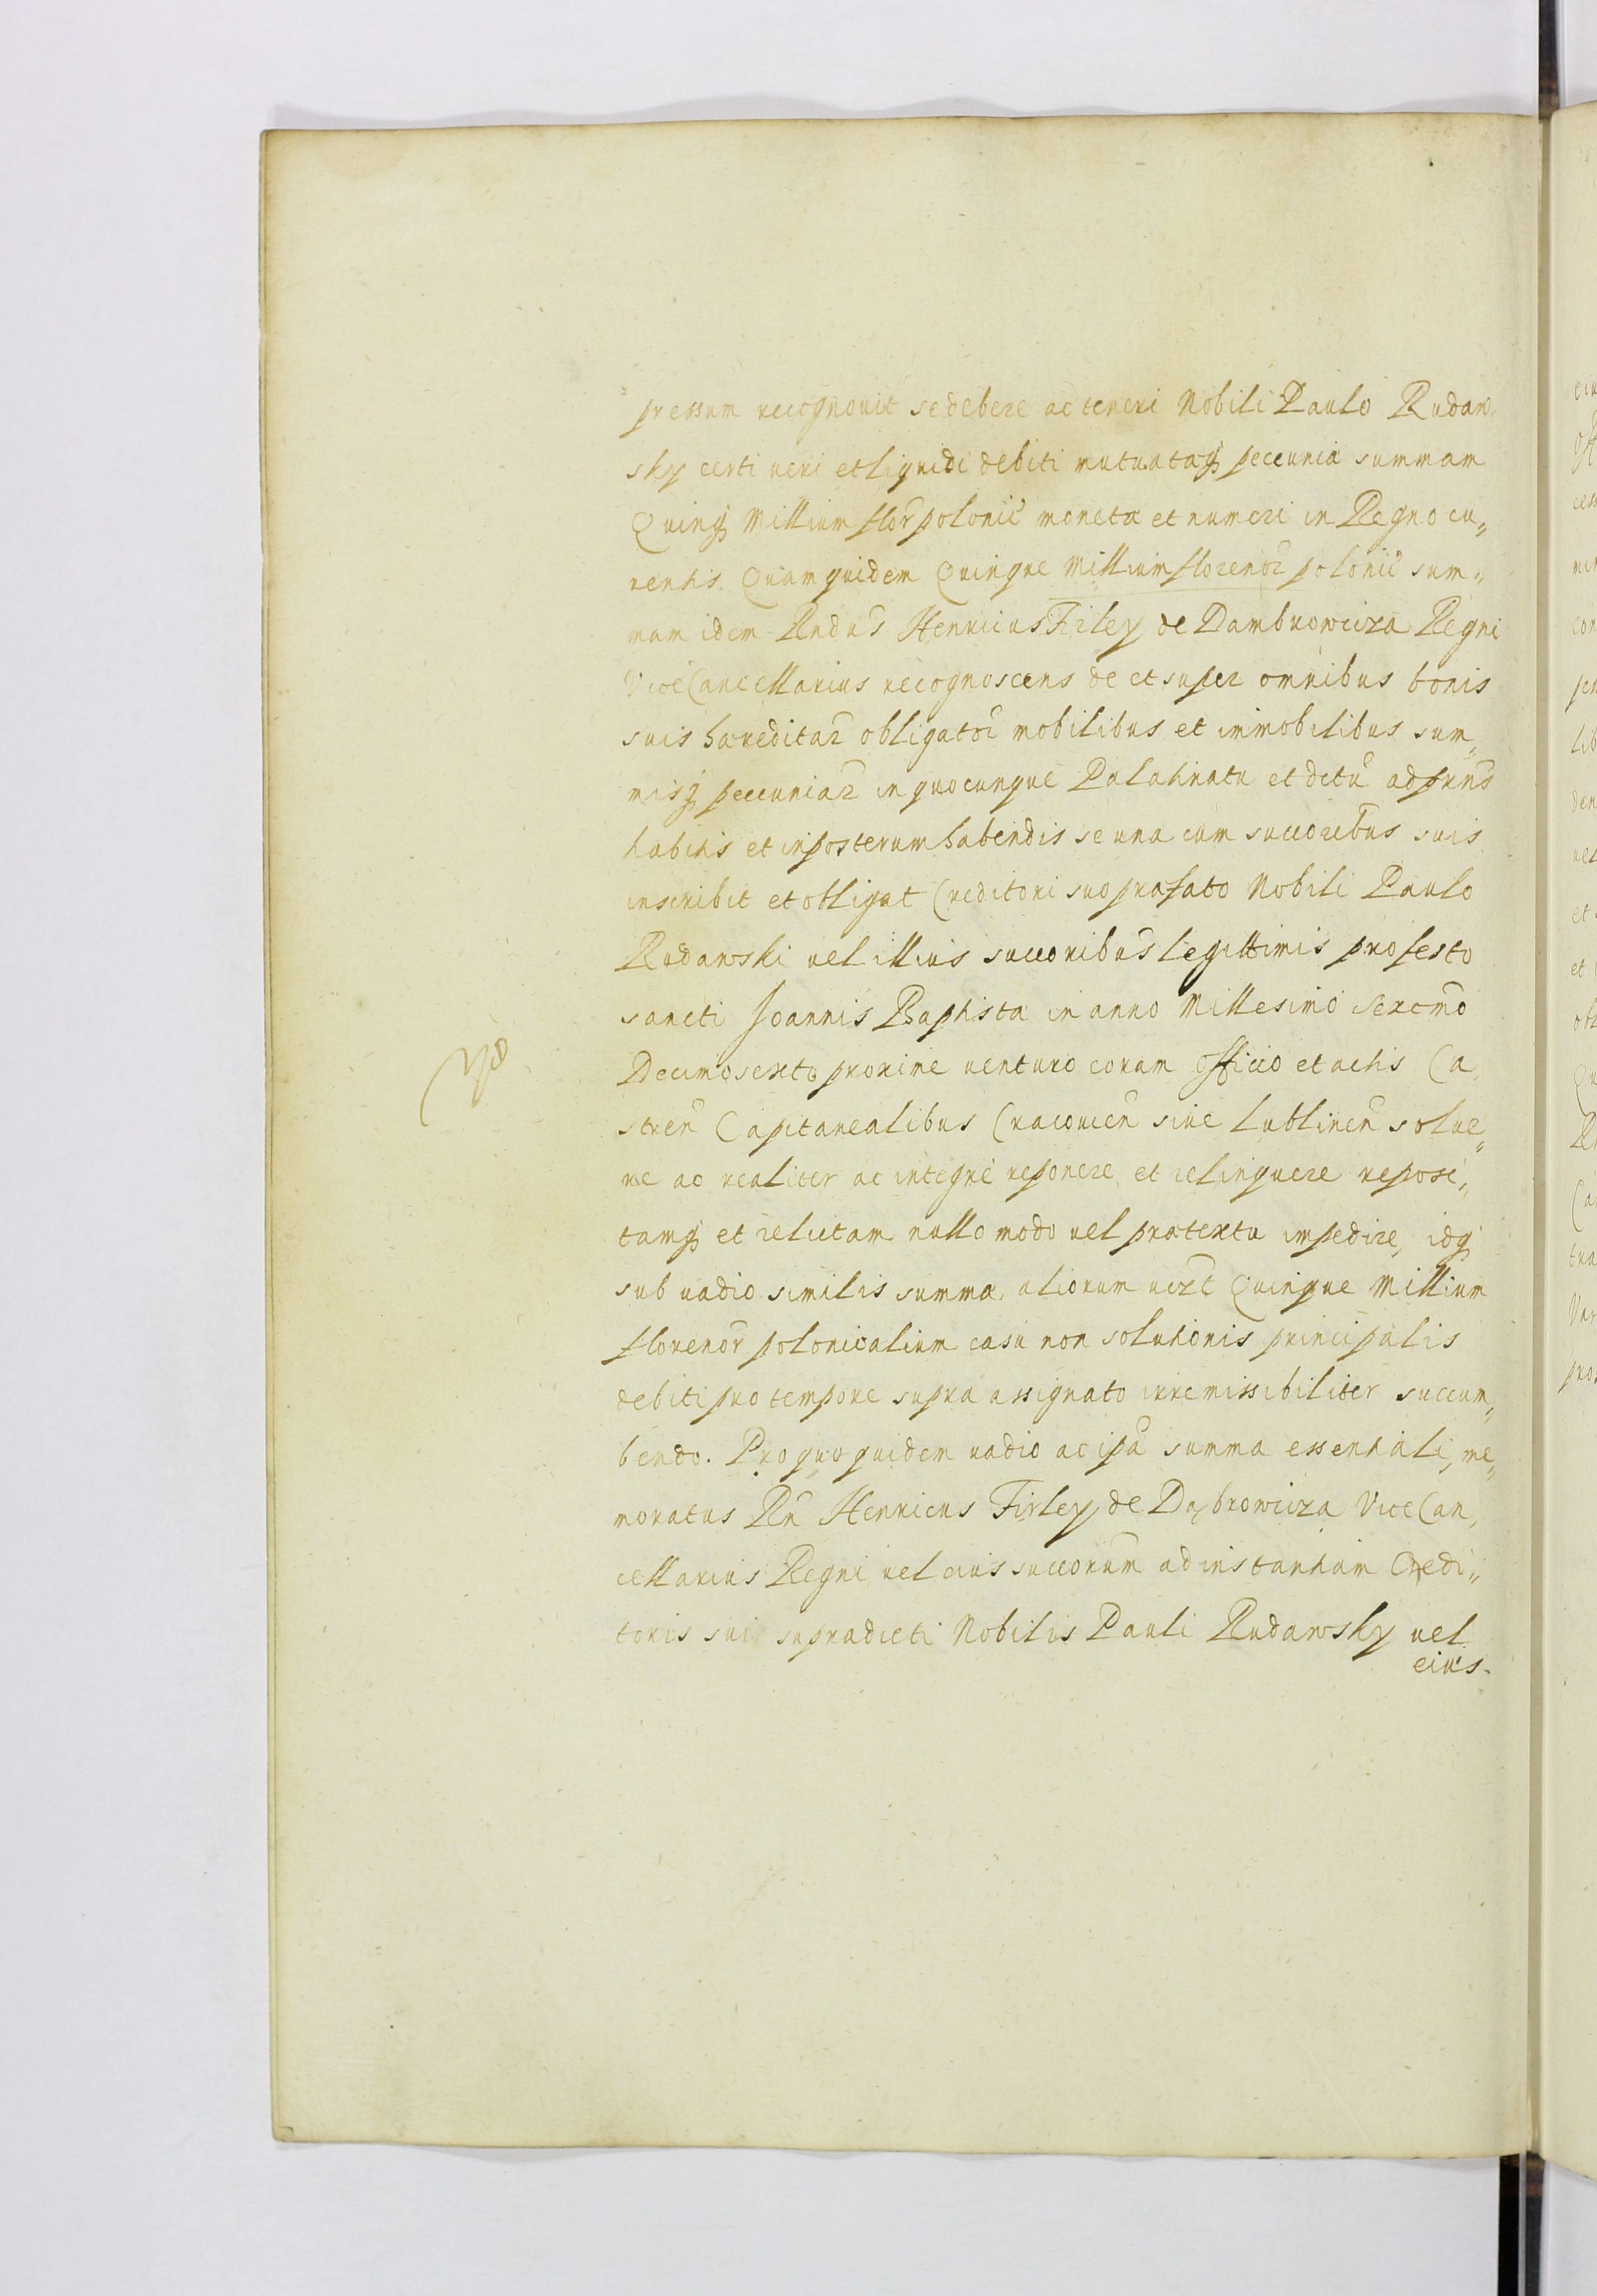 pressum recognovit se debere ac teneri Nobili Paulo Rudaw„
sky certi veri et liquidi debiti mutuatæq₃ pecuniæ summam
Quinq₃ Millium flor̃ polonic̃ monetæ et numeri in Regno cu„
rentis. Quam quidem Quinque Millium florenor̃ polonic̃ sum„
mam idem Rndus̃ Henricus Firley de Dambrowicza Regni
ViceCancellarius recognoscens de et super omnibus bonis
suis hæreditar̃ obligator̃ mobilibus et immobilibus sum„
misq₃ pecuniar̃ in quocunque Palatinatu et dctũ ad prns̃
habitis et inposterum habendis se una cum succoribus̃ suis
inscribit et obligat Creditori suo præfato Nobili Paulo
Rudawski vel illius succoribus̃ legittimis pro festo
sancti Joannis Baptistæ in anno Millesimo Sexcmõ
Decimosexto proxime venturo coram officio et actis Ca„
stren̄ Capitanealibus Cracovien̄ sive Lublinen̄ solve„
re ac realiter ac integrè reponere et relinquere reposi„
tamq₃ et relictam nullo modo vel prætextu impedire, idq₃
sub vadio similis summæ, aliorum vizt Quinque Millium
florenor̃ polonicalium casu non solutionis principalis
debiti pro tempore supra assignato irremissibiliter succum„
bendo. Pro quo quidem vadio ac ipã summa essentiali, me„
moratus Rñ Henricus Firley de Dąbrowicza ViceCan„
cellarius Regni vel eius succorum̃ ad instantiam Credi„
toris sui supradicti Nobilis Pauli Rudawsky vel
eius.